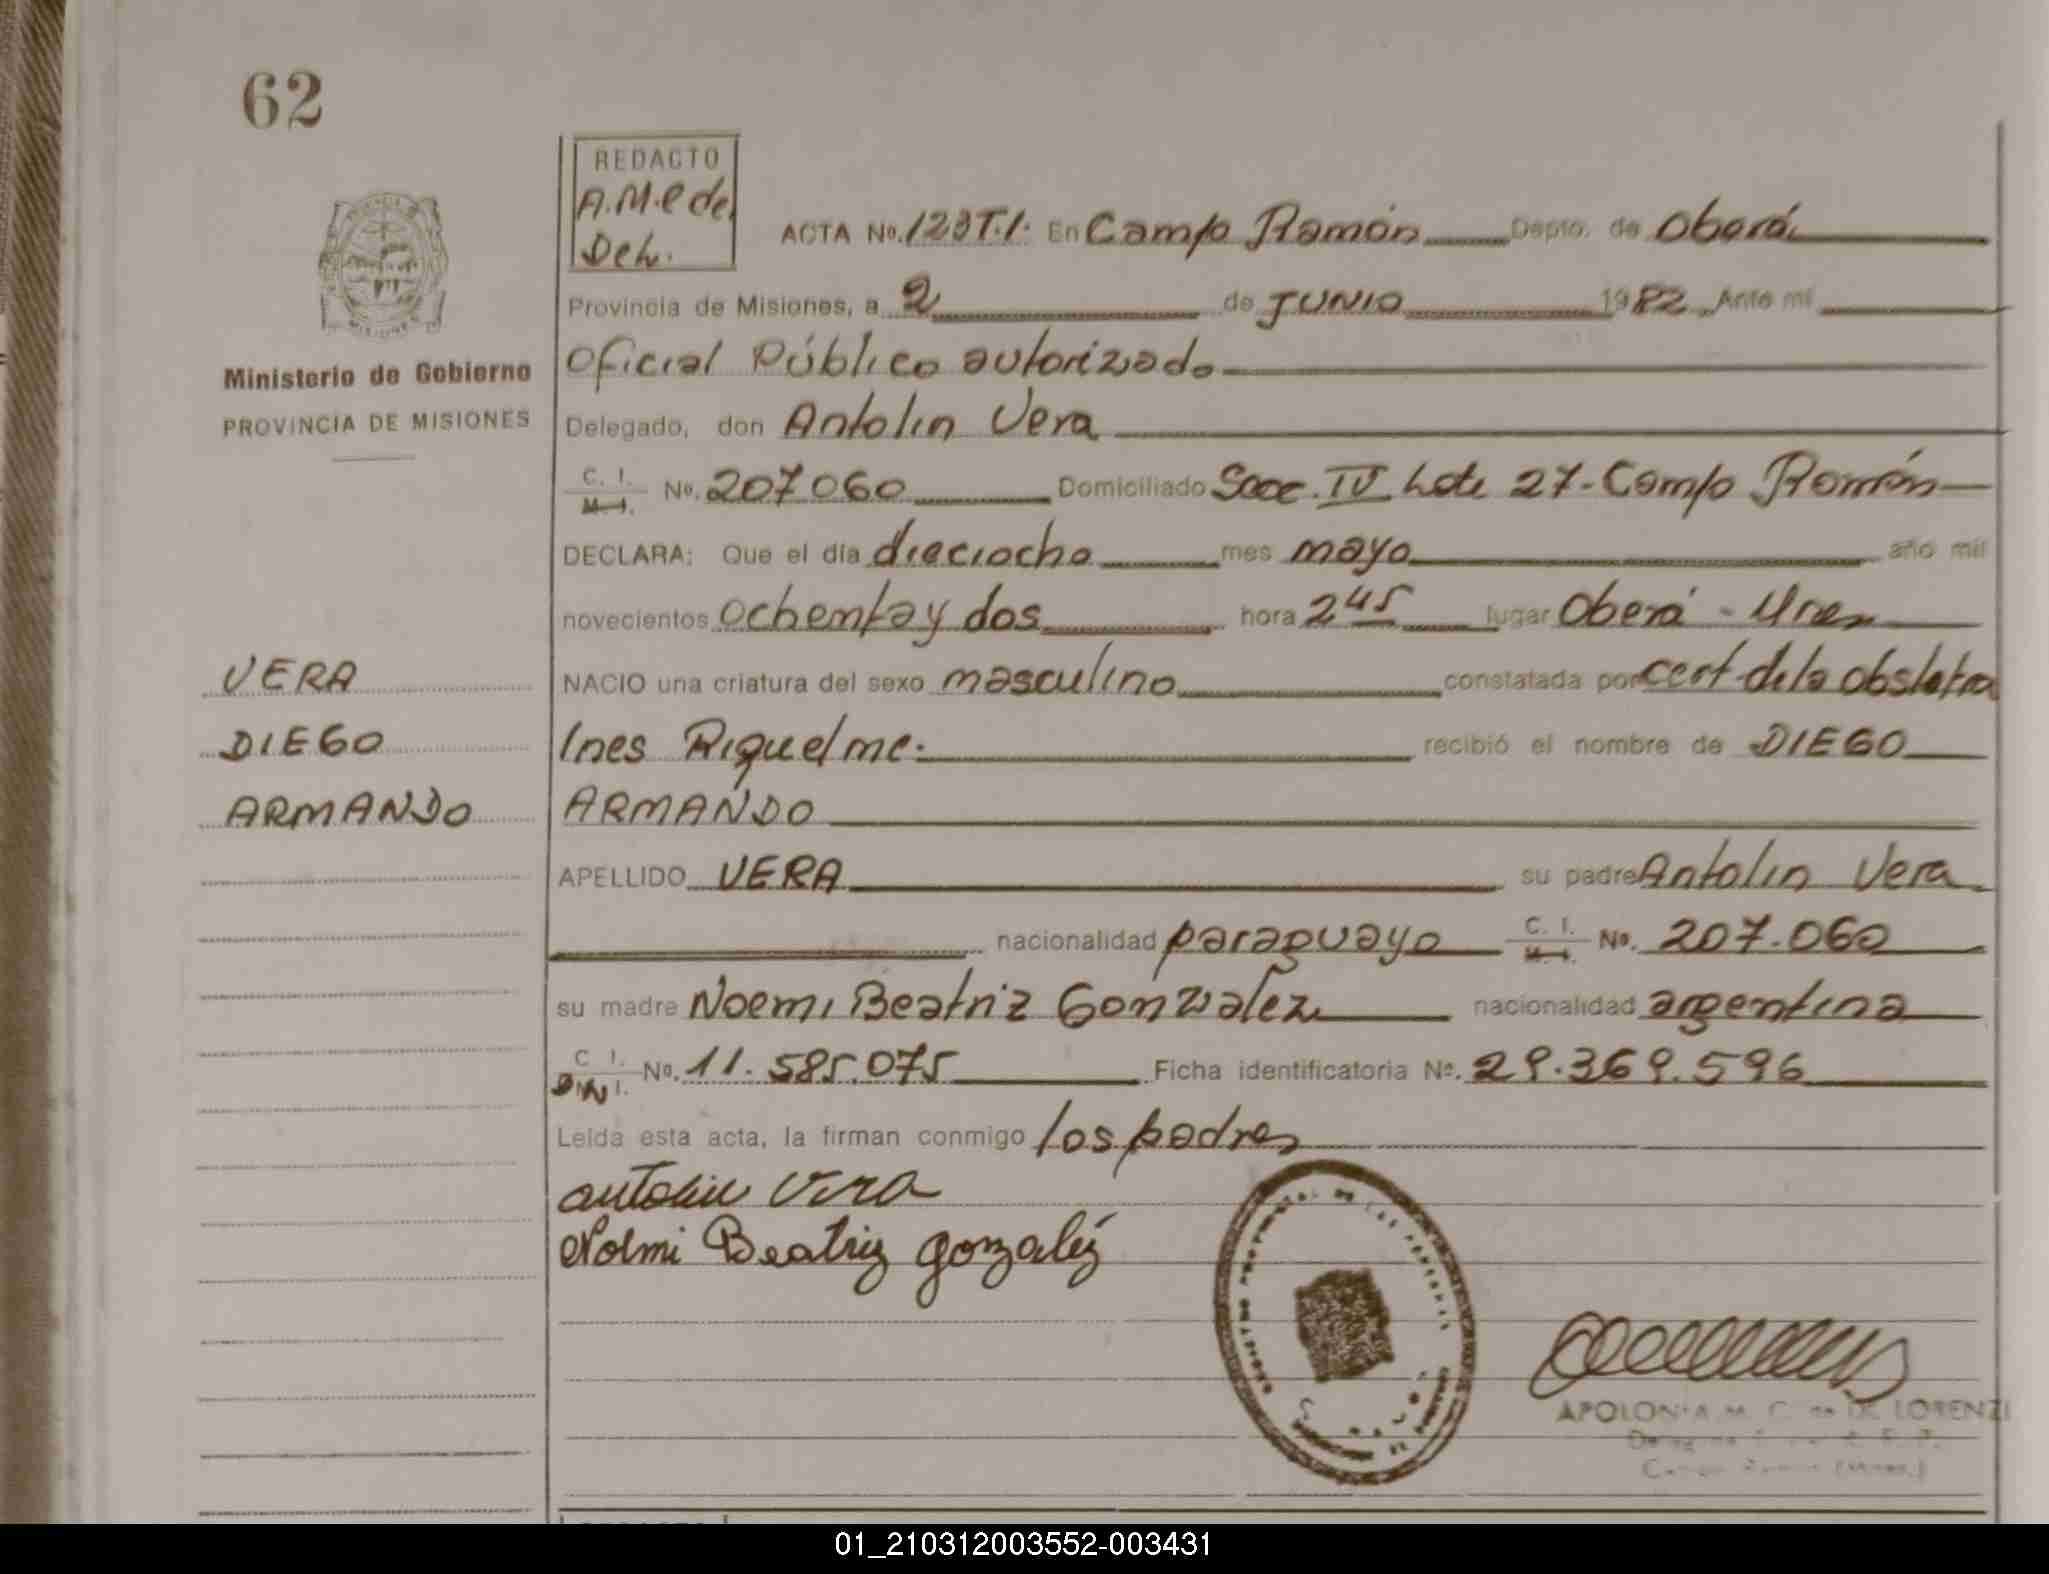 62
REDACTO
A.M.C de
Del.
ACTA No. 123 T.1. En Campo Ramón Depto. de Oberá
Provincia de Misiones, a 2 de JUNIO 1982 Ante mí
Oficial Público autorizado
Ministerio de Gobierno
PROVINCIA DE MISIONES
Delegado, don Antolin Vera
C. I. M. I. No. 207060 Domiciliado Secc. IV Lote 27- Campo Ramón
DECLARA: Que el día dieciocho mes mayo año mil
novecientos ochenta y dos hora 2 45 lugar Oberá - Mnes
VERA
NACIO una criatura del sexo masculino constatada por cert de la obstetra
DIEGO
Ines Riquelme. recibió el nombre de DIEGO
ARMANDO
ARMANDO
APELLIDO VERA su padre Antolin Vera
nacionalidad paraguayo C. I. M. I. No. 207.060
su madre Noemi Beatriz Gonzalez nacionalidad argentina
C I. DNI. No. 11.585.075 Ficha identificatoria No. 29.369.596
Leída esta acta, la firman conmigo los padres
antolin vera
Noemi Beatriz gonzaléz
APOLONIA M. C. de DE LORENZI
01_210312003552-003431